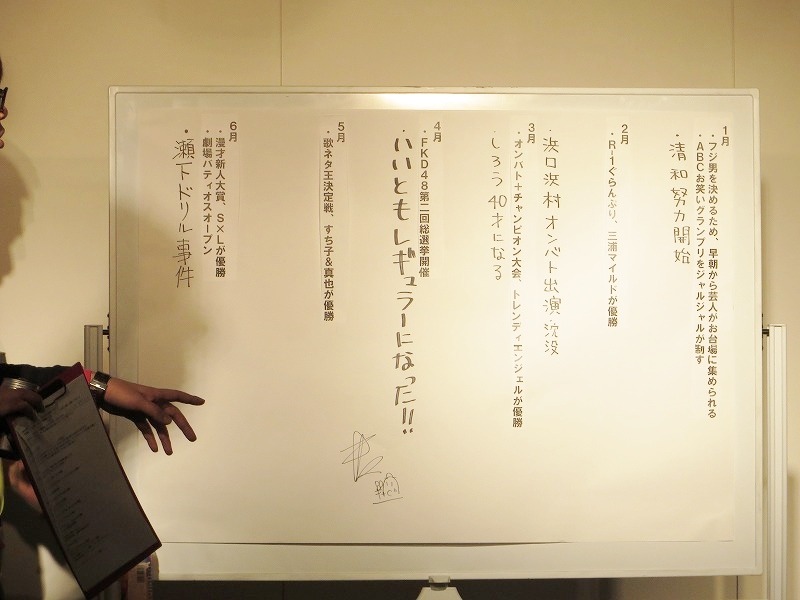 1月
・フジ男を決めるため、早朝から芸人がお台場に集められる
・ABCお笑いグランプリをジャルジャルが制す
・清和努力開始
2月
・R-1ぐらんぷり、三浦マイルドが優勝
・浜口浜村オンバト出演、沈没
3月
・オンバト+チャンピオン大会、トレンディエンジェルが優勝
・しろう40才になる
4月
・FKD48第二回総選挙開催
・いいともレギュラーになった!!
5月
・歌ネタ王決定戦、すち子&真也が優勝
6月
・漫才新人大賞、S×Lが優勝
・劇場バティオスオープン
・瀬下ドリル事件